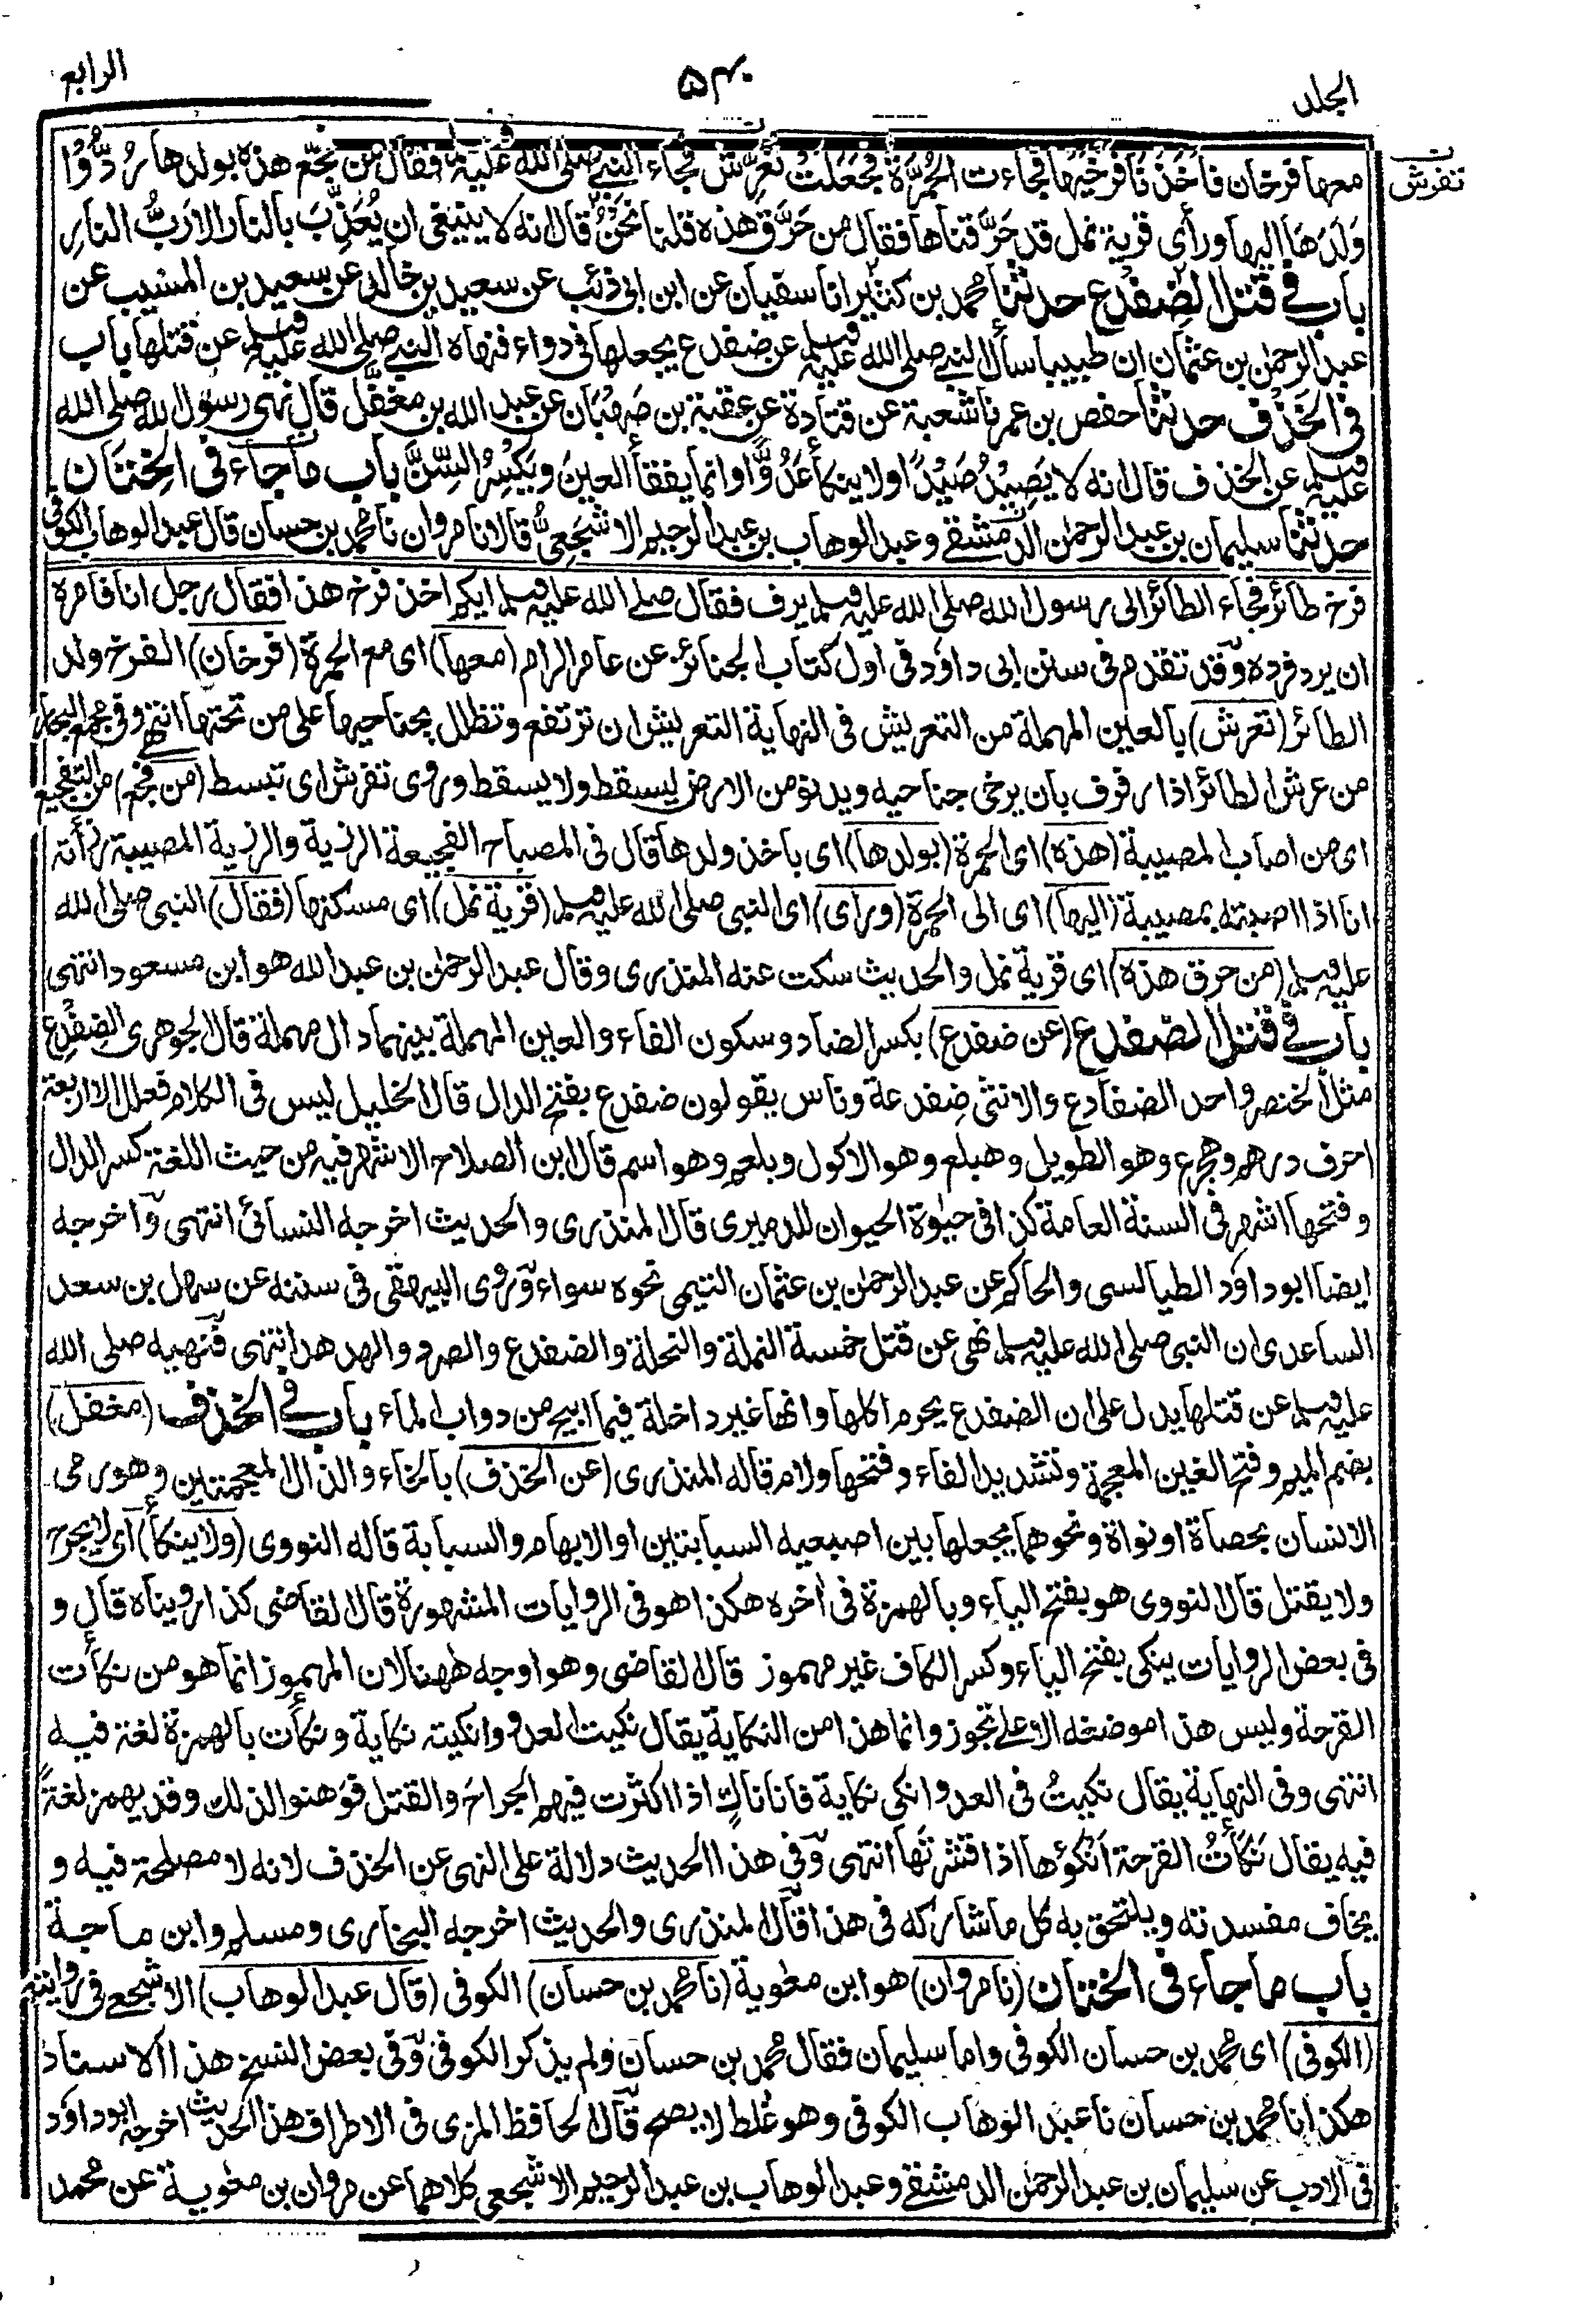 الجلد
٥٤٠
الرابع
تفرش
معها فرخان فاخذنا فرخيها فجاءت الحُمَّرَة فجعلت تُعَرِّش فجاء النبي صلى الله عليه وسلم فقال من فجّع هذه بولدها رُدُّوا
وَلَدَهَا اليها ورأى قرية نمل قد حَرَّقناها فقال من حَرَّقَ هذه قلنا نَحْنُ قال انه لا ينبغى ان يُعَذِّبَ بالنار الا رَبُّ النارِ
باب فى قتل الضِفْدِع حدثنا محمد بن كثير انا سفيان عن ابن ابى ذئب عن سعيد بن خالد عن سعيد بن المسيب عن
عبد الرحمٰن بن عثمان ان طبيبا سأل النبى صلى الله عليه وسلم عن ضفدع يجعلها فى دواء فنهاه النبى صلى الله عليه وسلم عن قتلها باب
فى الخَذْف حدثنا حفص بن عمر نا شعبة عن قتادة عن عقبة بن صَهْبَان عن عبد الله بن مغفَّل قال نهى رسول الله صلى الله
عليه وسلم عن الخذف قال انه لا يَصِيْدُ صَيْدًا ولا ينكأ عَدُوًّا وانما يفقأ العينَ ويَكْسِرُ السِّنَّ باب ما جاء فى الخِتَان
حدثنا سليمان بن عبد الرحمٰن الدمشقى وعبد الوهاب بن عبد الرحيم الاشجعىُّ قالا نا مروان نا محمد بن حسان قال عبد الوهاب الكوفى
فرخ طائر فجاء الطائر الى رسول الله صلى الله عليه وسلم يرف فقال صلى الله عليه وسلم ايكم اخذ فرخ هذا فقال رجل انا فامره
ان يرد فرده وقد تقدم فى سنن ابى داود فى اول كتاب الجنائز عن عامر الرام (معها) اى مع الحمرة (فرخان) الفرخ ولد
الطائر (تعرش) بالعين المهملة من التعريش فى النهاية التعريش ان ترتفع وتظلل بجناحيها على من تحتها انتهى وفى مجمع البحار
من عرش الطائر اذا رفرف بان يرخى جناحيه ويدنو من الارض ليسقط ولا يسقط وروى تفرش اى تبسط (من فجع) من التفجيع
اى من اصاب المصيبة (هذه) اى الحمرة (بولدها) اى باخذ ولدها قال فى المصباح الفجيعة الرزية والرزية المصيبة رزأته
انا اذا اصبته بمصيبة (اليها) اى الى الحمرة (وراى) اى النبى صلى الله عليه وسلم (قرية نمل) اى مسكنها (فقال) النبى صلى الله
عليه وسلم (من حرق هذه) اى قرية نمل والحديث سكت عنه المنذرى وقال عبد الرحمٰن بن عبد الله هو ابن مسعود انتهى
باب فى قتل الضفدع (عن ضفدع) بكسر الضاد وسكون الفاء والعين المهملة بينهما دال مهملة قال الجوهرى الضفدع
مثل الخنصر واحد الضفادع والانثى ضفدعة وناس يقولون ضفدع بفتح الدال قال الخليل ليس فى الكلام فعلل الا اربعة
احرف درهم وهجرع وهو الطويل وهبلع وهو الاكول وبلعم وهو اسم قال ابن الصلاح الاشهر فيه من حيث اللغة كسر الدال
وفتحها اشهر فى السنة العامة كذا فى حيٰوة الحيوان للدميرى قال المنذرى والحديث اخرجه النسائى انتهى واخرجه
ايضا ابو داود الطيالسى والحاكم عن عبد الرحمٰن بن عثمان التيمى نحوه سواء وروى البيهقى فى سننه عن سهل بن سعد
الساعدى ان النبى صلى الله عليه وسلم نهى عن قتل خمسة النملة والنحلة والضفدع والصرد والهدهد انتهى فنهيه صلى الله
عليه وسلم عن قتلها يدل على ان الضفدع يحرم اكلها وانها غير داخلة فيما ابيح من دواب الماء باب فى الخذف (مغفل)
بضم الميم وفتح الغين المعجمة وتشديد الفاء وفتحها ولام قاله المنذرى (عن الخذف) بالخاء والذال المعجمتين وهو رمى
الانسان بحصاة او نواة ونحوهما يجعلها بين اصبعيه السبابتين او الابهام والسبابة قاله النووى (ولا ينكأ) اى لا يجرح
ولا يقتل قال النووى هو بفتح الياء وبالهمزة فى اٰخره هكذا هو فى الروايات المشهورة قال القاضى كذا رويناه قال و
فى بعض الروايات ينكى بفتح الياء وكسر الكاف غير مهموز قال القاضى وهو اوجه ههنا لان المهموز انما هو من نكأت
القرحة وليس هذا موضعه الا على تجوز وانما هذا من النكاية يقال نكيت العدو وانكيته نكاية ونكأت بالهمزة لغة فيه
انتهى وفى النهاية يقال نكيتُ فى العدو انكى نكاية فانا ناكٍ اذا اكثرت فيهم الجراحَ والقتل فوَهنوا لذلك وقد يهمز لغةً
فيه يقال نَكَأْتُ القرحة اَنْكَؤها اذا قشرتَها انتهى وفى هذا الحديث دلالة على النهى عن الخذف لانه لا مصلحة فيه و
يخاف مفسدته ويلتحق به كل ما شاركه فى هذا قال المنذرى والحديث اخرجه البخارى ومسلم وابن ماجة
باب ما جاء فى الختان (نا مروان) هو ابن معٰوية (نا محمد بن حسان) الكوفى (قال عبد الوهاب) الاشجعى فى روايته
(الكوفى) اى محمد بن حسان الكوفى واما سليمان فقال محمد بن حسان ولم يذكر الكوفى وفى بعض النسخ هذا الاسناد
هكذا نا محمد بن حسان نا عبد الوهاب الكوفى وهو غلط لا يصح قال الحافظ المزى فى الاطراف هذا الحديث اخرجه ابو داود
فى الادب عن سليمان بن عبد الرحمٰن الدمشقى وعبد الوهاب بن عبد الرحيم الاشجعى كلاهما عن مروان بن معٰوية عن محمد